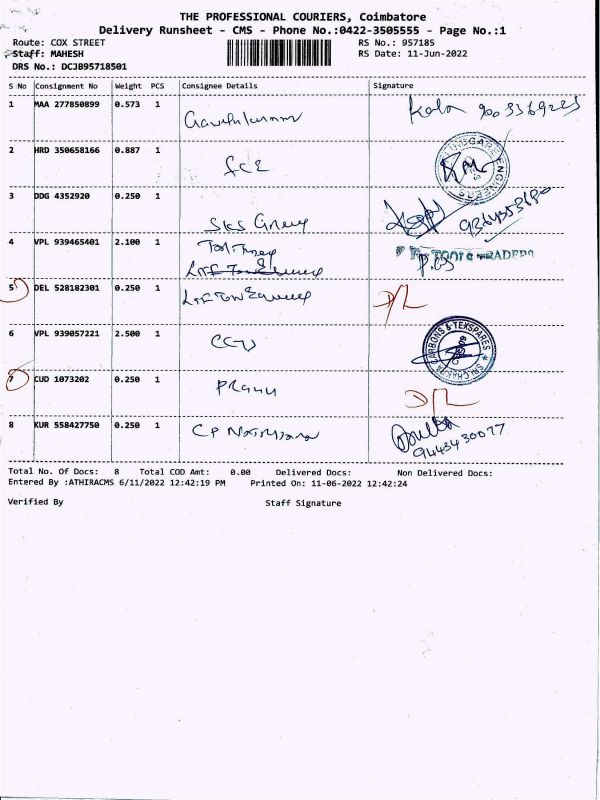 THE PROFESSIONAL COURIERS, Coimbatore
Delivery Runsheet - CMS - Phone No.:0422-3505555 - Page No.:1
Route: COX STREET RS No.: 957185
Staff: MAHESH RS Date: 11-Jun-2022
DRS No.: DCJB95718501
S No Consignment No Weight PCS Consignee Details Signature
1 MAA 277850899 0.573 1 Kala
2 HRD 350658166 0.887 1
3 DDG 4352920 0.250 1 SKS Group 9364353680
4 VPL 939465401 2.100 1 TRADERS
5 DEL 528182301 0.250 1 D/L
6 VPL 939057221 2.500 1 CARBONS & TEXSPARES
7 CUD 1073202 0.250 1 D/L
8 KUR 558427750 0.250 1 CP 9443430077
Total No. Of Docs: 8 Total COD Amt: 0.00 Delivered Docs: Non Delivered Docs:
Entered By :ATHIRACMS 6/11/2022 12:42:19 PM Printed On: 11-06-2022 12:42:24
Verified By Staff Signature